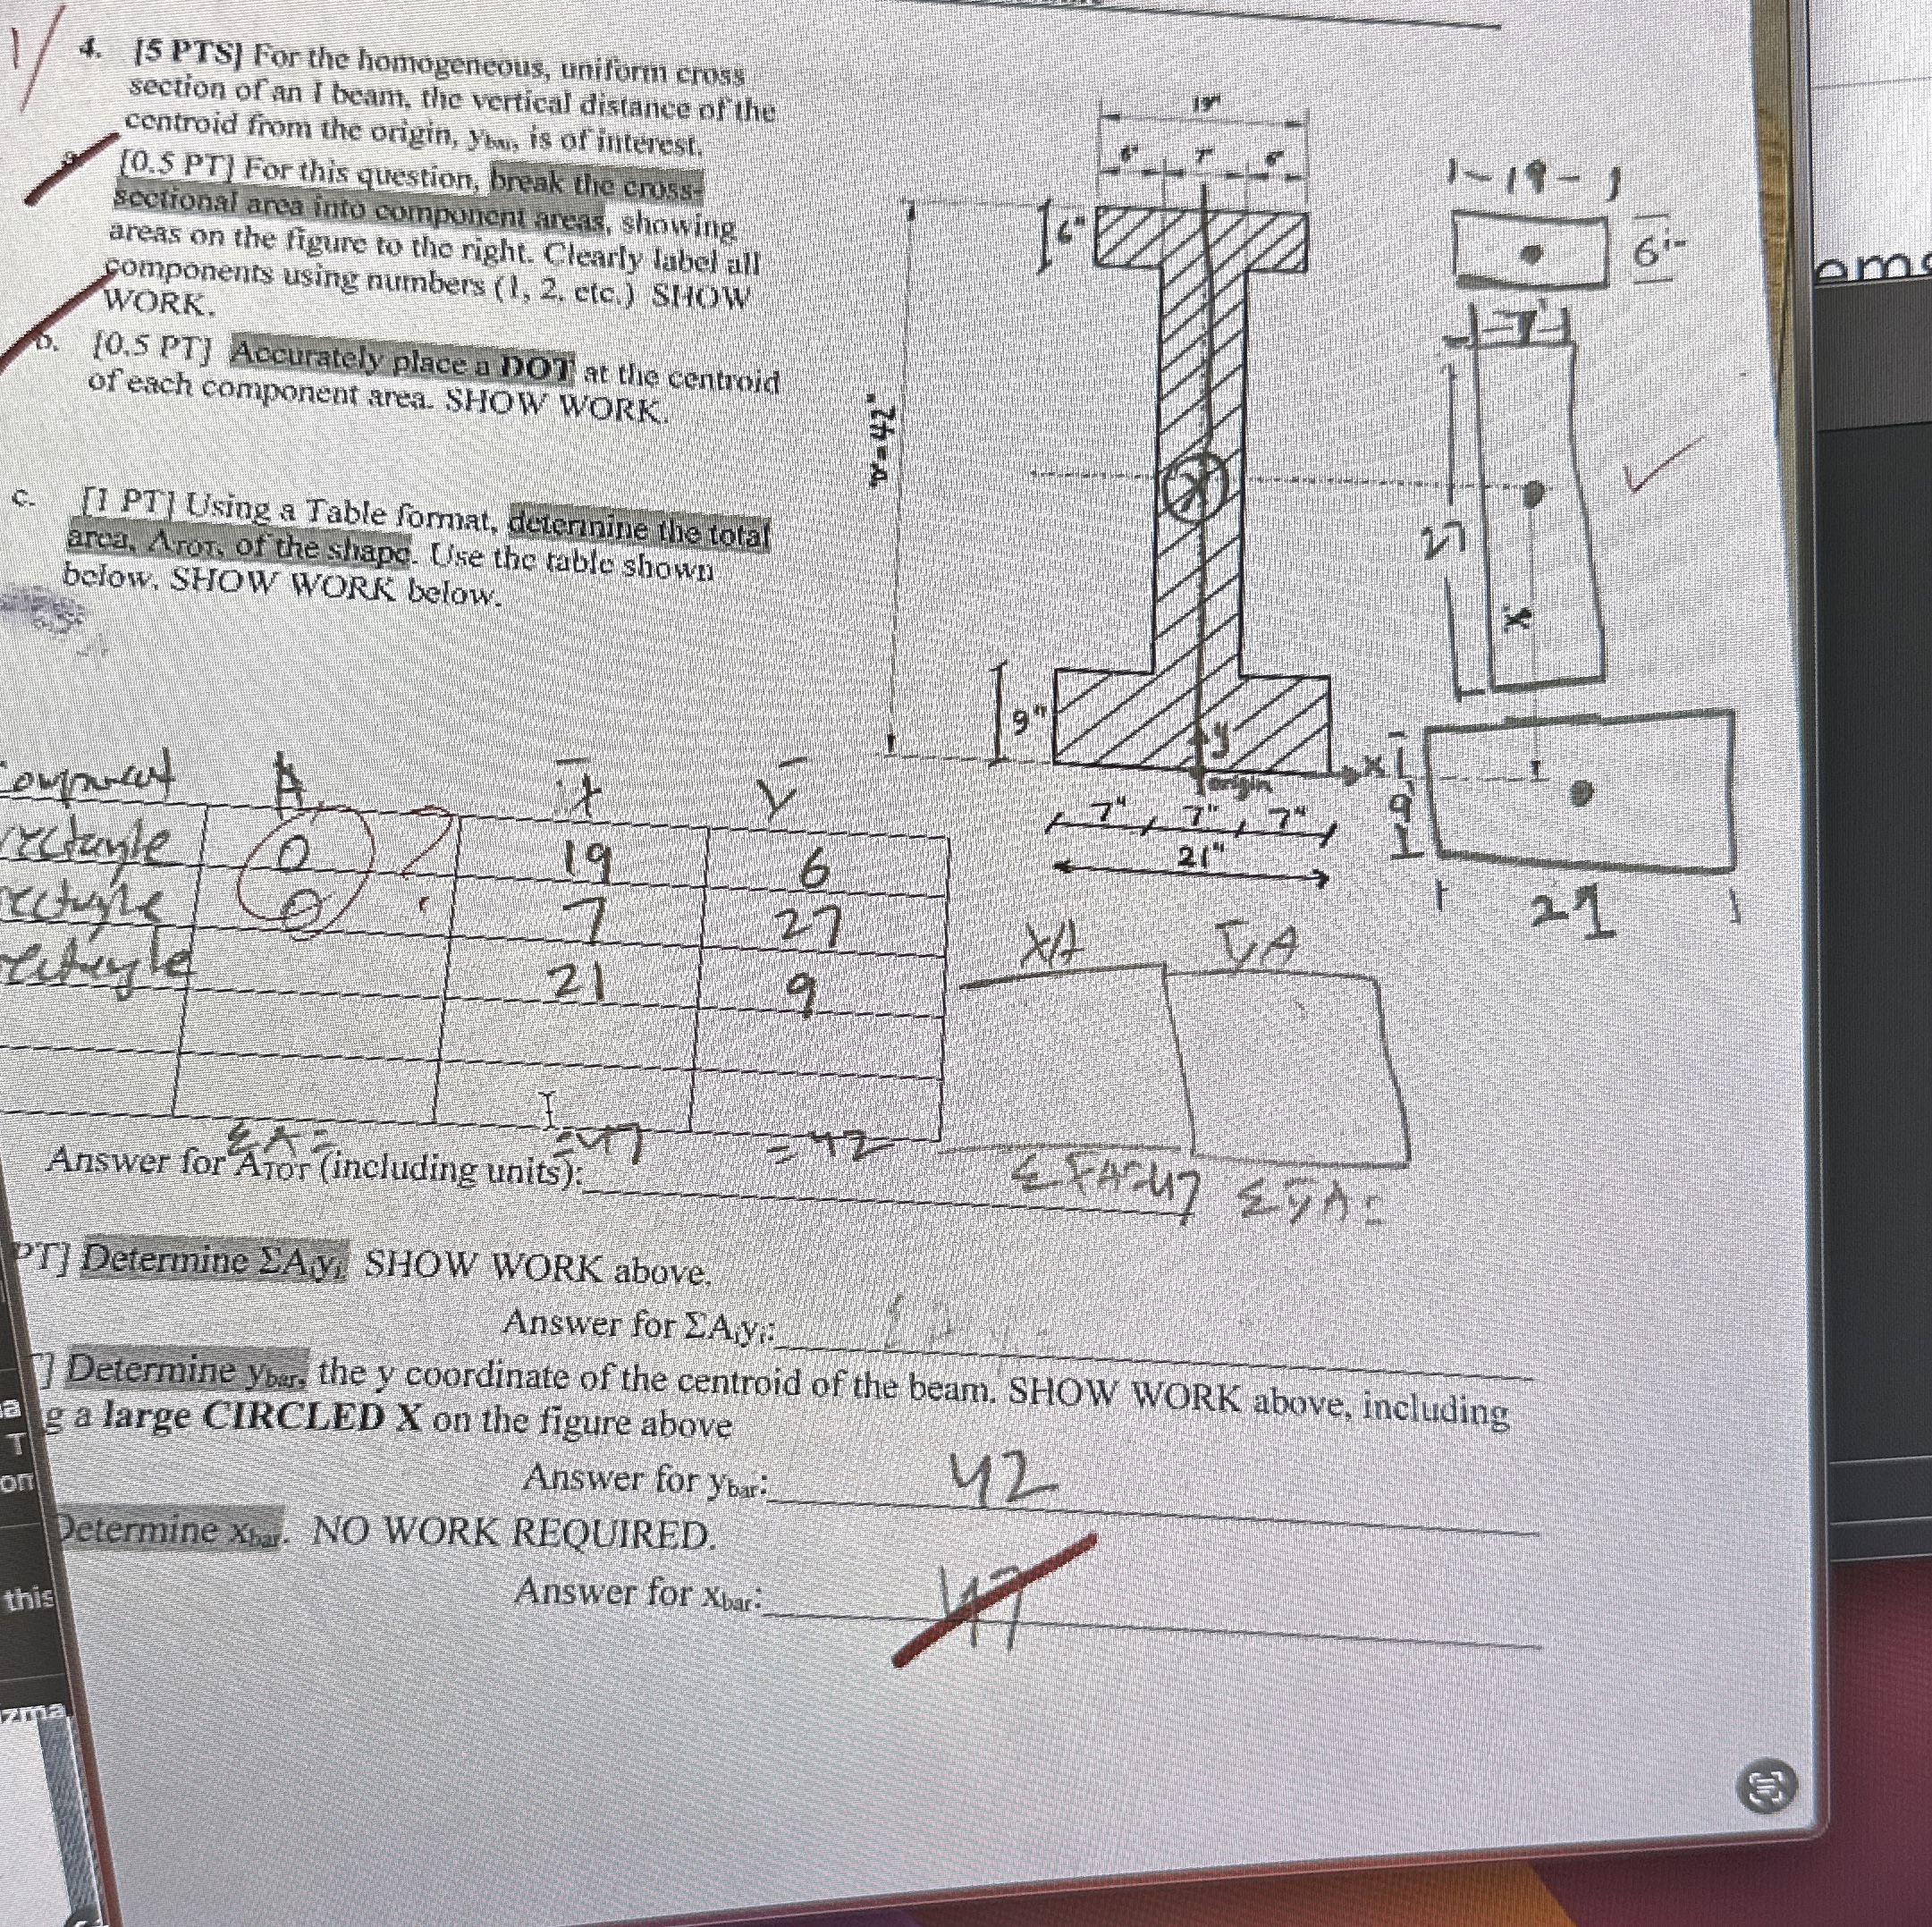 1/
4. [5 PTS] For the homogeneous, uniform cross
section of an I beam, the vertical distance of the
centroid from the origin, ybar, is of interest.
[0.5 PT] For this question, break the cross-
sectional area into component areas, showing
areas on the figure to the right. Clearly label all
components using numbers (1, 2, etc.) SHOW
WORK.
b. [0.5 PT] Accurately place a DOT at the centroid
of each component area. SHOW WORK.
c. [1 PT] Using a Table format, determine the total
area, ATOT, of the shape. Use the table shown
below. SHOW WORK below.
6"
9"
y
x
origin
7" 7" 7"
21"
19
6
7
27
x
9
A
rectangle 0 19 6
rectangle 0 7 27
rectangle 21 9
XA ȲA
ΣA= =47 =42
Answer for ATOT (including units):
Σx̄A=47 ΣȳA=
PT] Determine ΣAiyi. SHOW WORK above.
Answer for ΣAiyi:
] Determine ybar, the y coordinate of the centroid of the beam. SHOW WORK above, including
g a large CIRCLED X on the figure above
Answer for ybar: 42
Determine xbar. NO WORK REQUIRED.
Answer for xbar: 47
a
T
on
this
zma